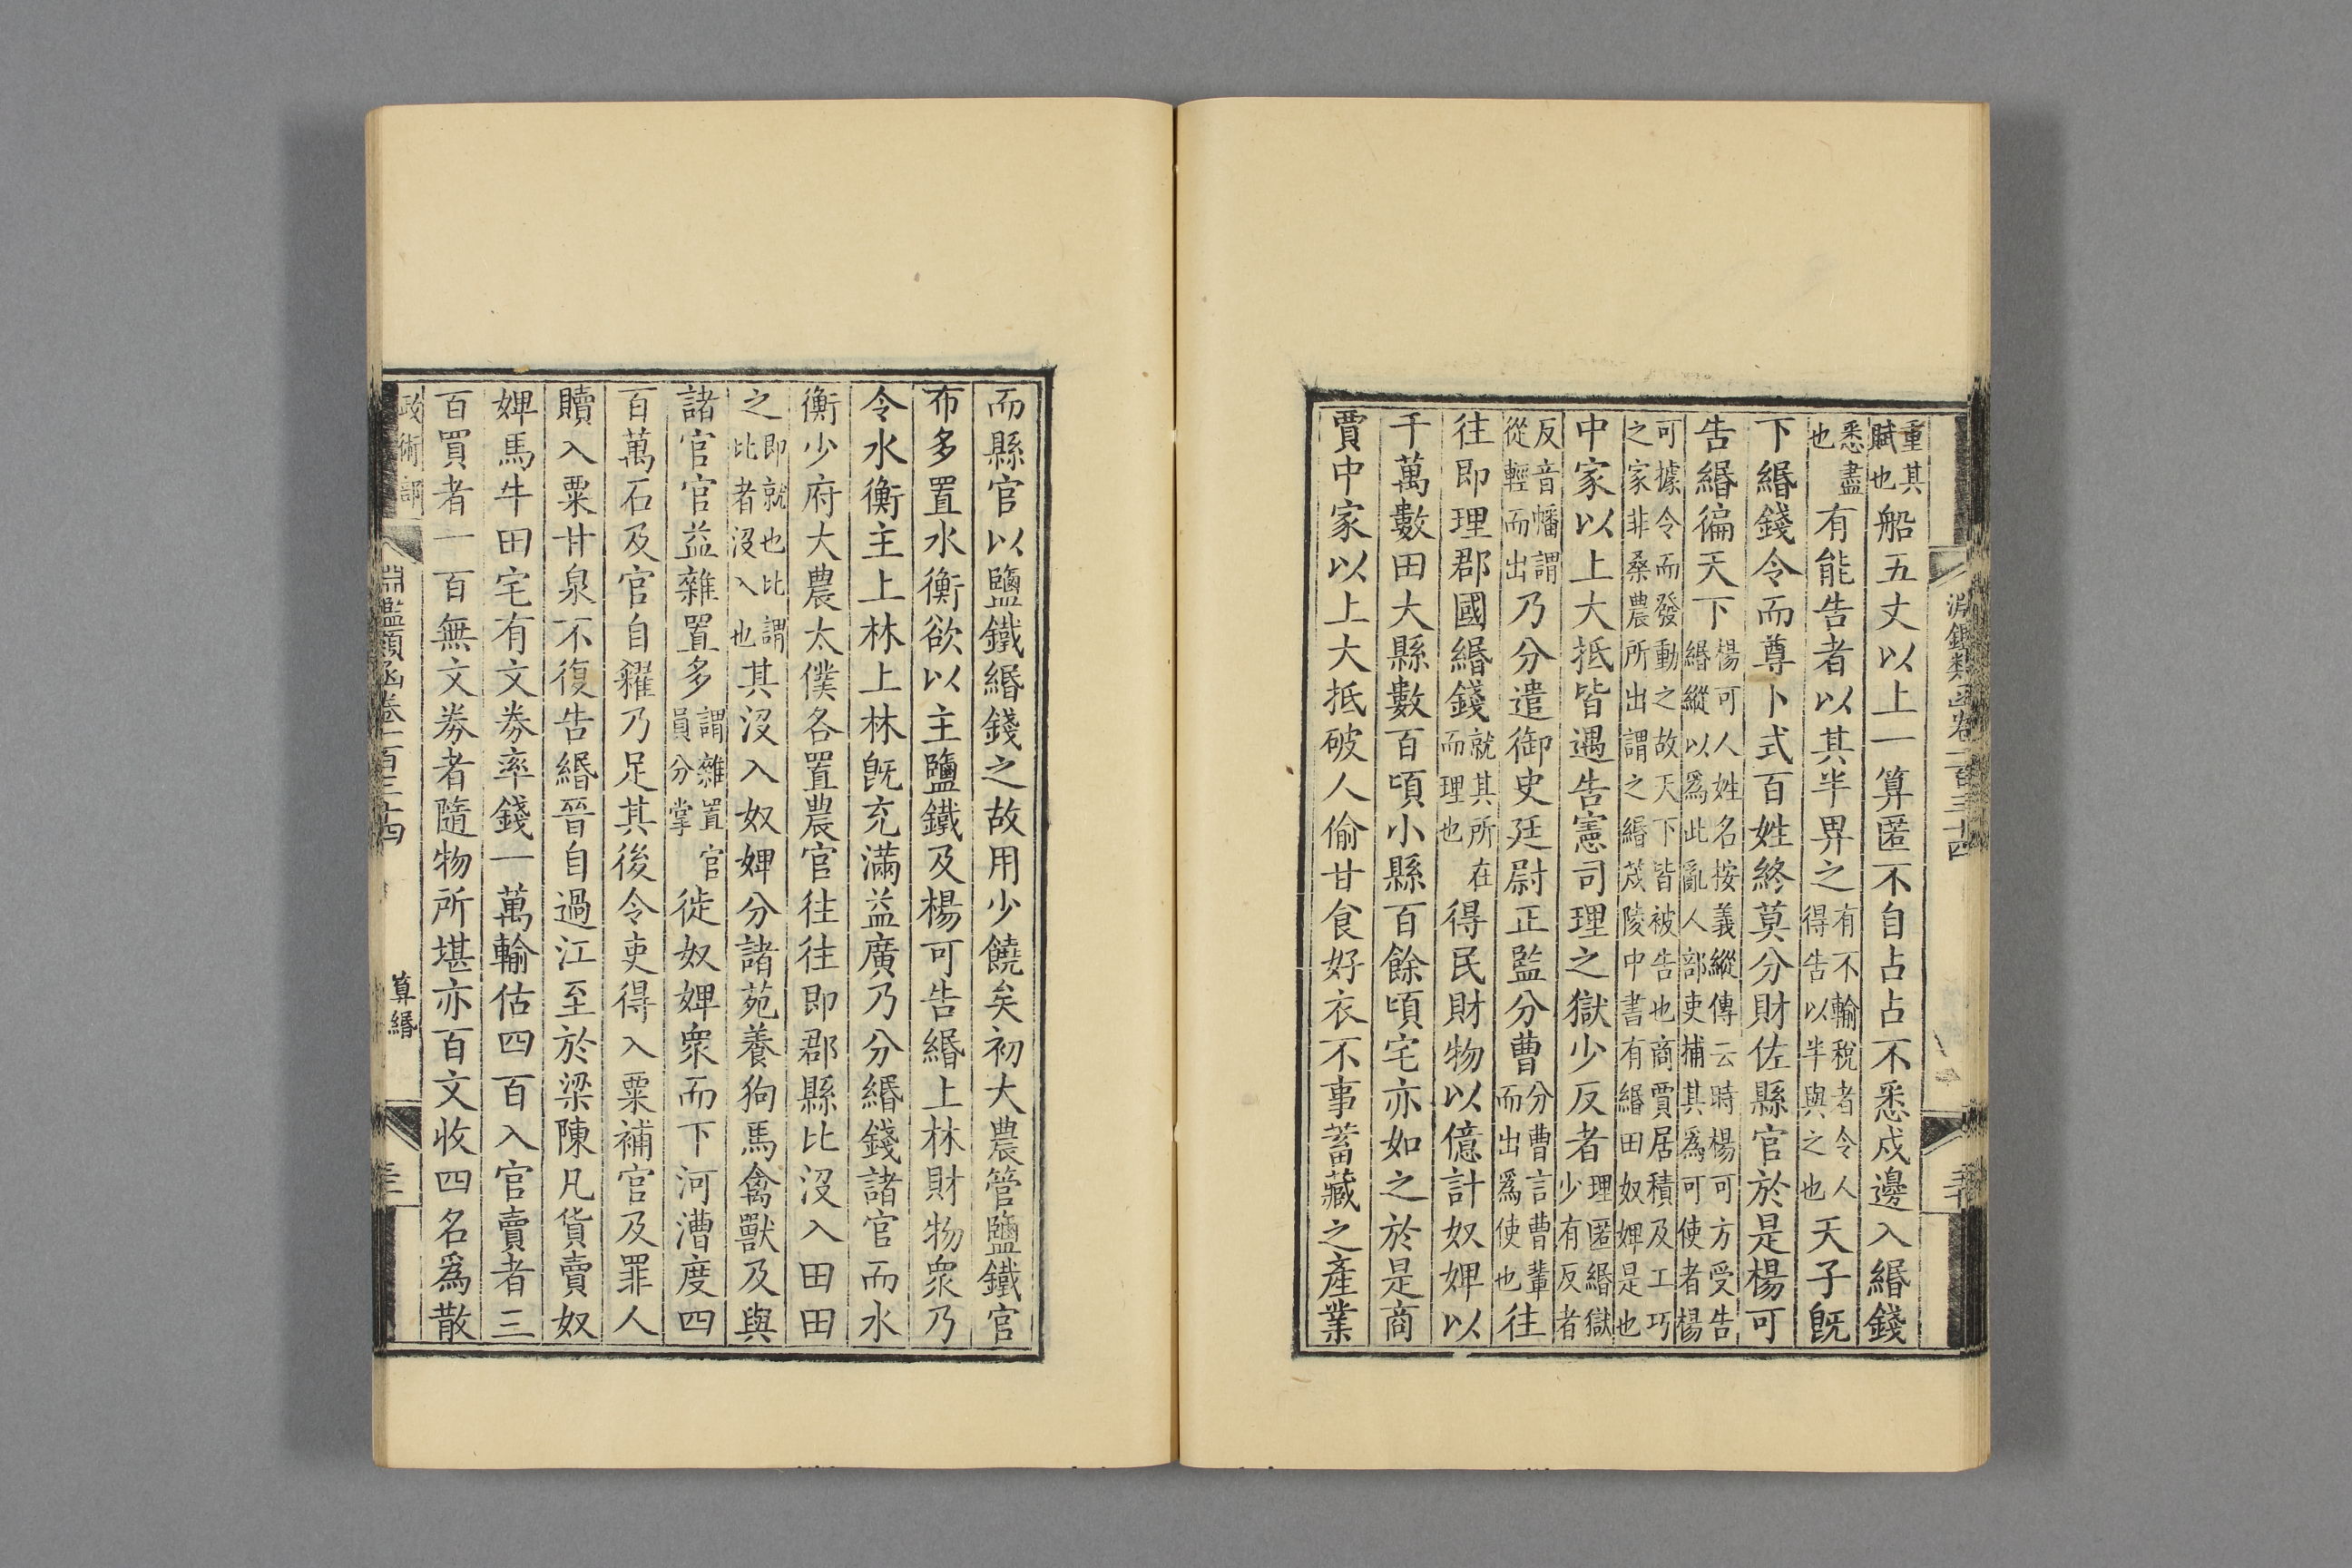 重其賦也船五丈以上一算匿不自占占不悉戍邊入緡錢
悉盡也有能告者以其半畀之有不輸稅者令人得告以半與之也天子旣
下緡錢令而尊卜式百姓終莫分財佐縣官於是楊可
告緡徧天下楊可人姓名按義縱傳云時楊可方受告緡縱以爲此亂人部吏捕其爲可使者楊
可據令而發動之故天下皆被告也商賈居積及工巧之家非桑農所出謂之緡茂陵中書有緡田奴婢是也
中家以上大抵皆遇告憲司理之獄少反者理匿緡獄少有反者
反音幡謂從輕而出乃分遣御史廷尉正監分曹分曹言曹輩而出爲使也往
往即理郡國緡錢就其所在而理也得民財物以億計奴婢以
千萬數田大縣數百頃小縣百餘頃宅亦如之於是商
賈中家以上大抵破人偷甘食好衣不事蓄藏之產業
淵鑑類函卷一百三十四
而縣官以鹽鐵緡錢之故用少饒矣初大農管鹽鐵官
布多置水衡欲以主鹽鐵及楊可告緡上林財物衆乃
令水衡主上林上林旣充滿益廣乃分緡錢諸官而水
衡少府大農太僕各置農官往往即郡縣比沒入田田
之即就也比謂比者沒入也其沒入奴婢分諸苑養狗馬禽獸及與
諸官官益雜置多謂雜置官員分掌徙奴婢衆而下河漕度四
百萬石及官自糴乃足其後令吏得入粟補官及罪人
贖入粟甘泉不復告緡晉自過江至於梁陳凡貨賣奴
婢馬牛田宅有文券率錢一萬輸估四百入官賣者三
百買者一百無文券者隨物所堪亦百文收四名爲散
政術部 淵鑑類函卷一百三十四 算緡